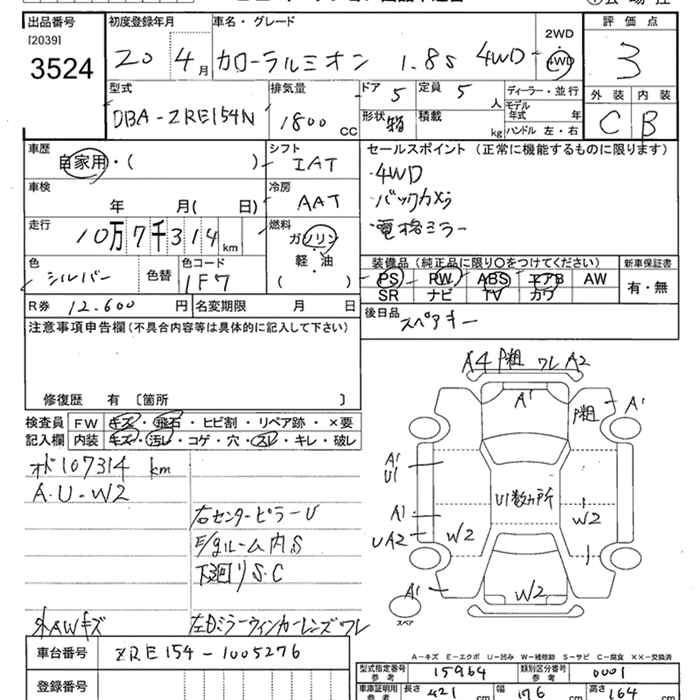 出品番号 初度登録年月 車名・グレード 2WD 評価点
[2039] 3524 20 4月 カローラルミオン 1.8S 4WD 4WD 3
型式 排気量 ドア 5 定員 5 人 ディーラー・並行 外装 内装
DBA-ZRE154N 1800 CC 形状 箱 積載 kg モデル年式 年 ハンドル 左・右 C B
車歴 シフト セールスポイント(正常に機能するものに限ります)
自家用・( ) IAT ・4WD
車検 冷房 ・バックカメラ
年 月( 日) AAT ・電格ミラー
走行 燃料
10万7千314km ガソリン・軽・油 ( )
装備品(純正品に限り〇をつけてください) 新車保証書
色 色替 色コード PS PW ABS エアB AW 有・無
シルバー 1F7 SR ナビ TV カワ
R券 12.600円 名変期限 月 日 後日品
スペアキー
注意事項申告欄(不具合内容等は具体的に記入して下さい)
修復歴 有 〔箇所 〕
検査員 FW キズ・飛石・ヒビ割・リペア跡・×要
記入欄 内装 キズ・汚レ・コゲ・穴・スレ・キレ・破レ
オド107314 km
A.U-W2
右センターピラーU
E/gルーム内S
下廻りS.C
外AWキズ 左Dミラーウィンカーレンズワレ
A4 P粗 ワレ A2
A1 P粗 A1
A1
U1
U1数ヵ所
A1 W2 W2
UA2
A1 W2
スペア
A-キズ E-エクボ U-凹み W-補修跡 S-サビ C-腐食 XX-交換済
車台番号 ZRE154-1005276
型式指定番号 参考 15964 類別区分番号 参考 0001
登録番号
車庫証明用 参考 長さ 421 cm 幅 176 cm 高さ 164 cm